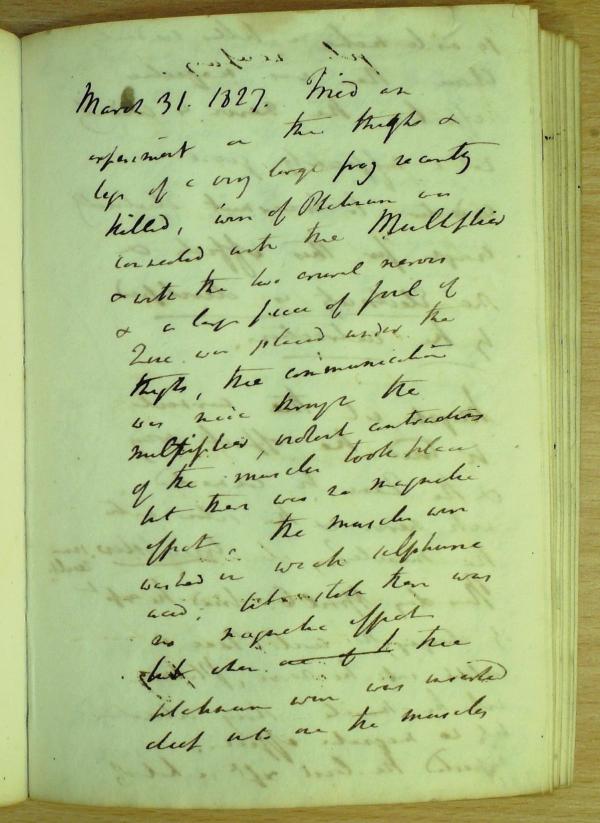 March 31. 1827. Tried an
experiment on the thighs &
legs of a very large frog recently
killed, wire of Platinum was
connected with the Multiplier
& with the two crural nerves
& a large piece of foil of
Zinc was placed under the
thighs, the communication
was made through the
multiplier, violent contractions
of the muscles took place
but there was no magnetic
effect, the muscles were
washed in weak sulphuric
acid, there was
no magnetic effect
but when one of the
platinum wire was inserted
deep into one the muscles